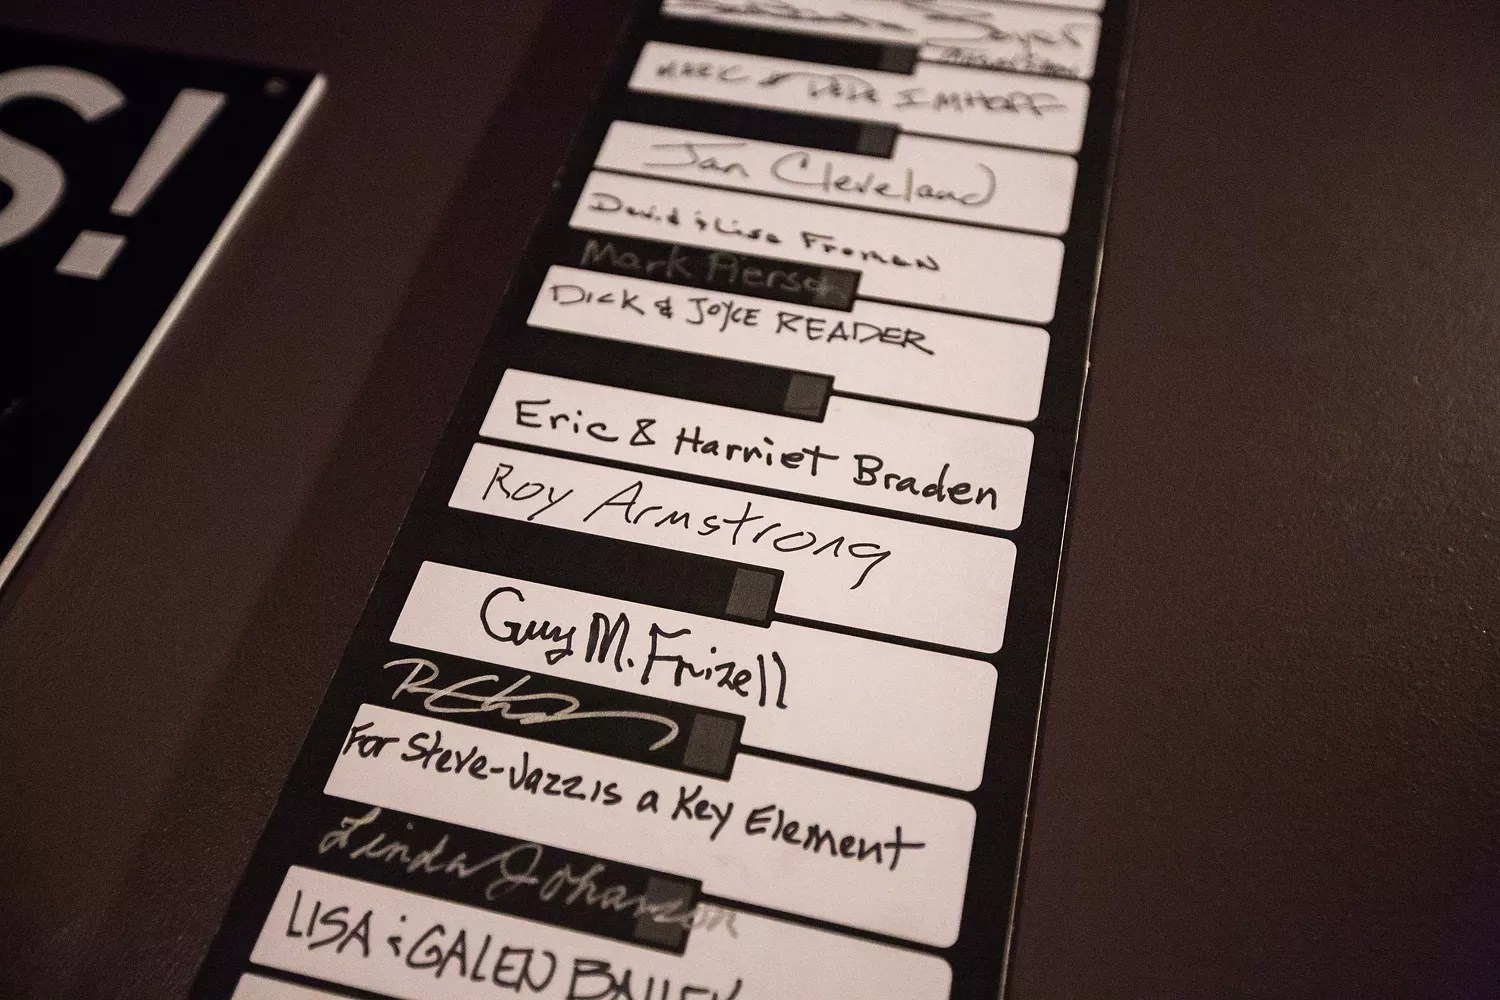 S!
MARC & DEDE IMHOFF
Jan Cleveland
David & Lisa Froman
Mark Pierson
DICK & JOYCE READER
Eric & Harriet Braden
Roy Armstrong
Guy M. Frizell
For Steve-Jazz is a Key Element
Linda Johanson
LISA & GALEN BAILEY